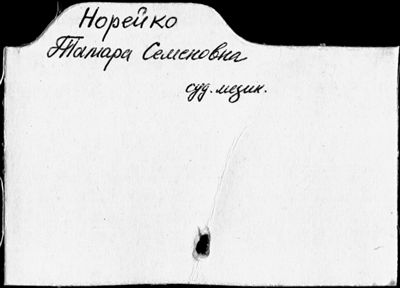 Норейко
Тамара Семеновна
суд. медик.